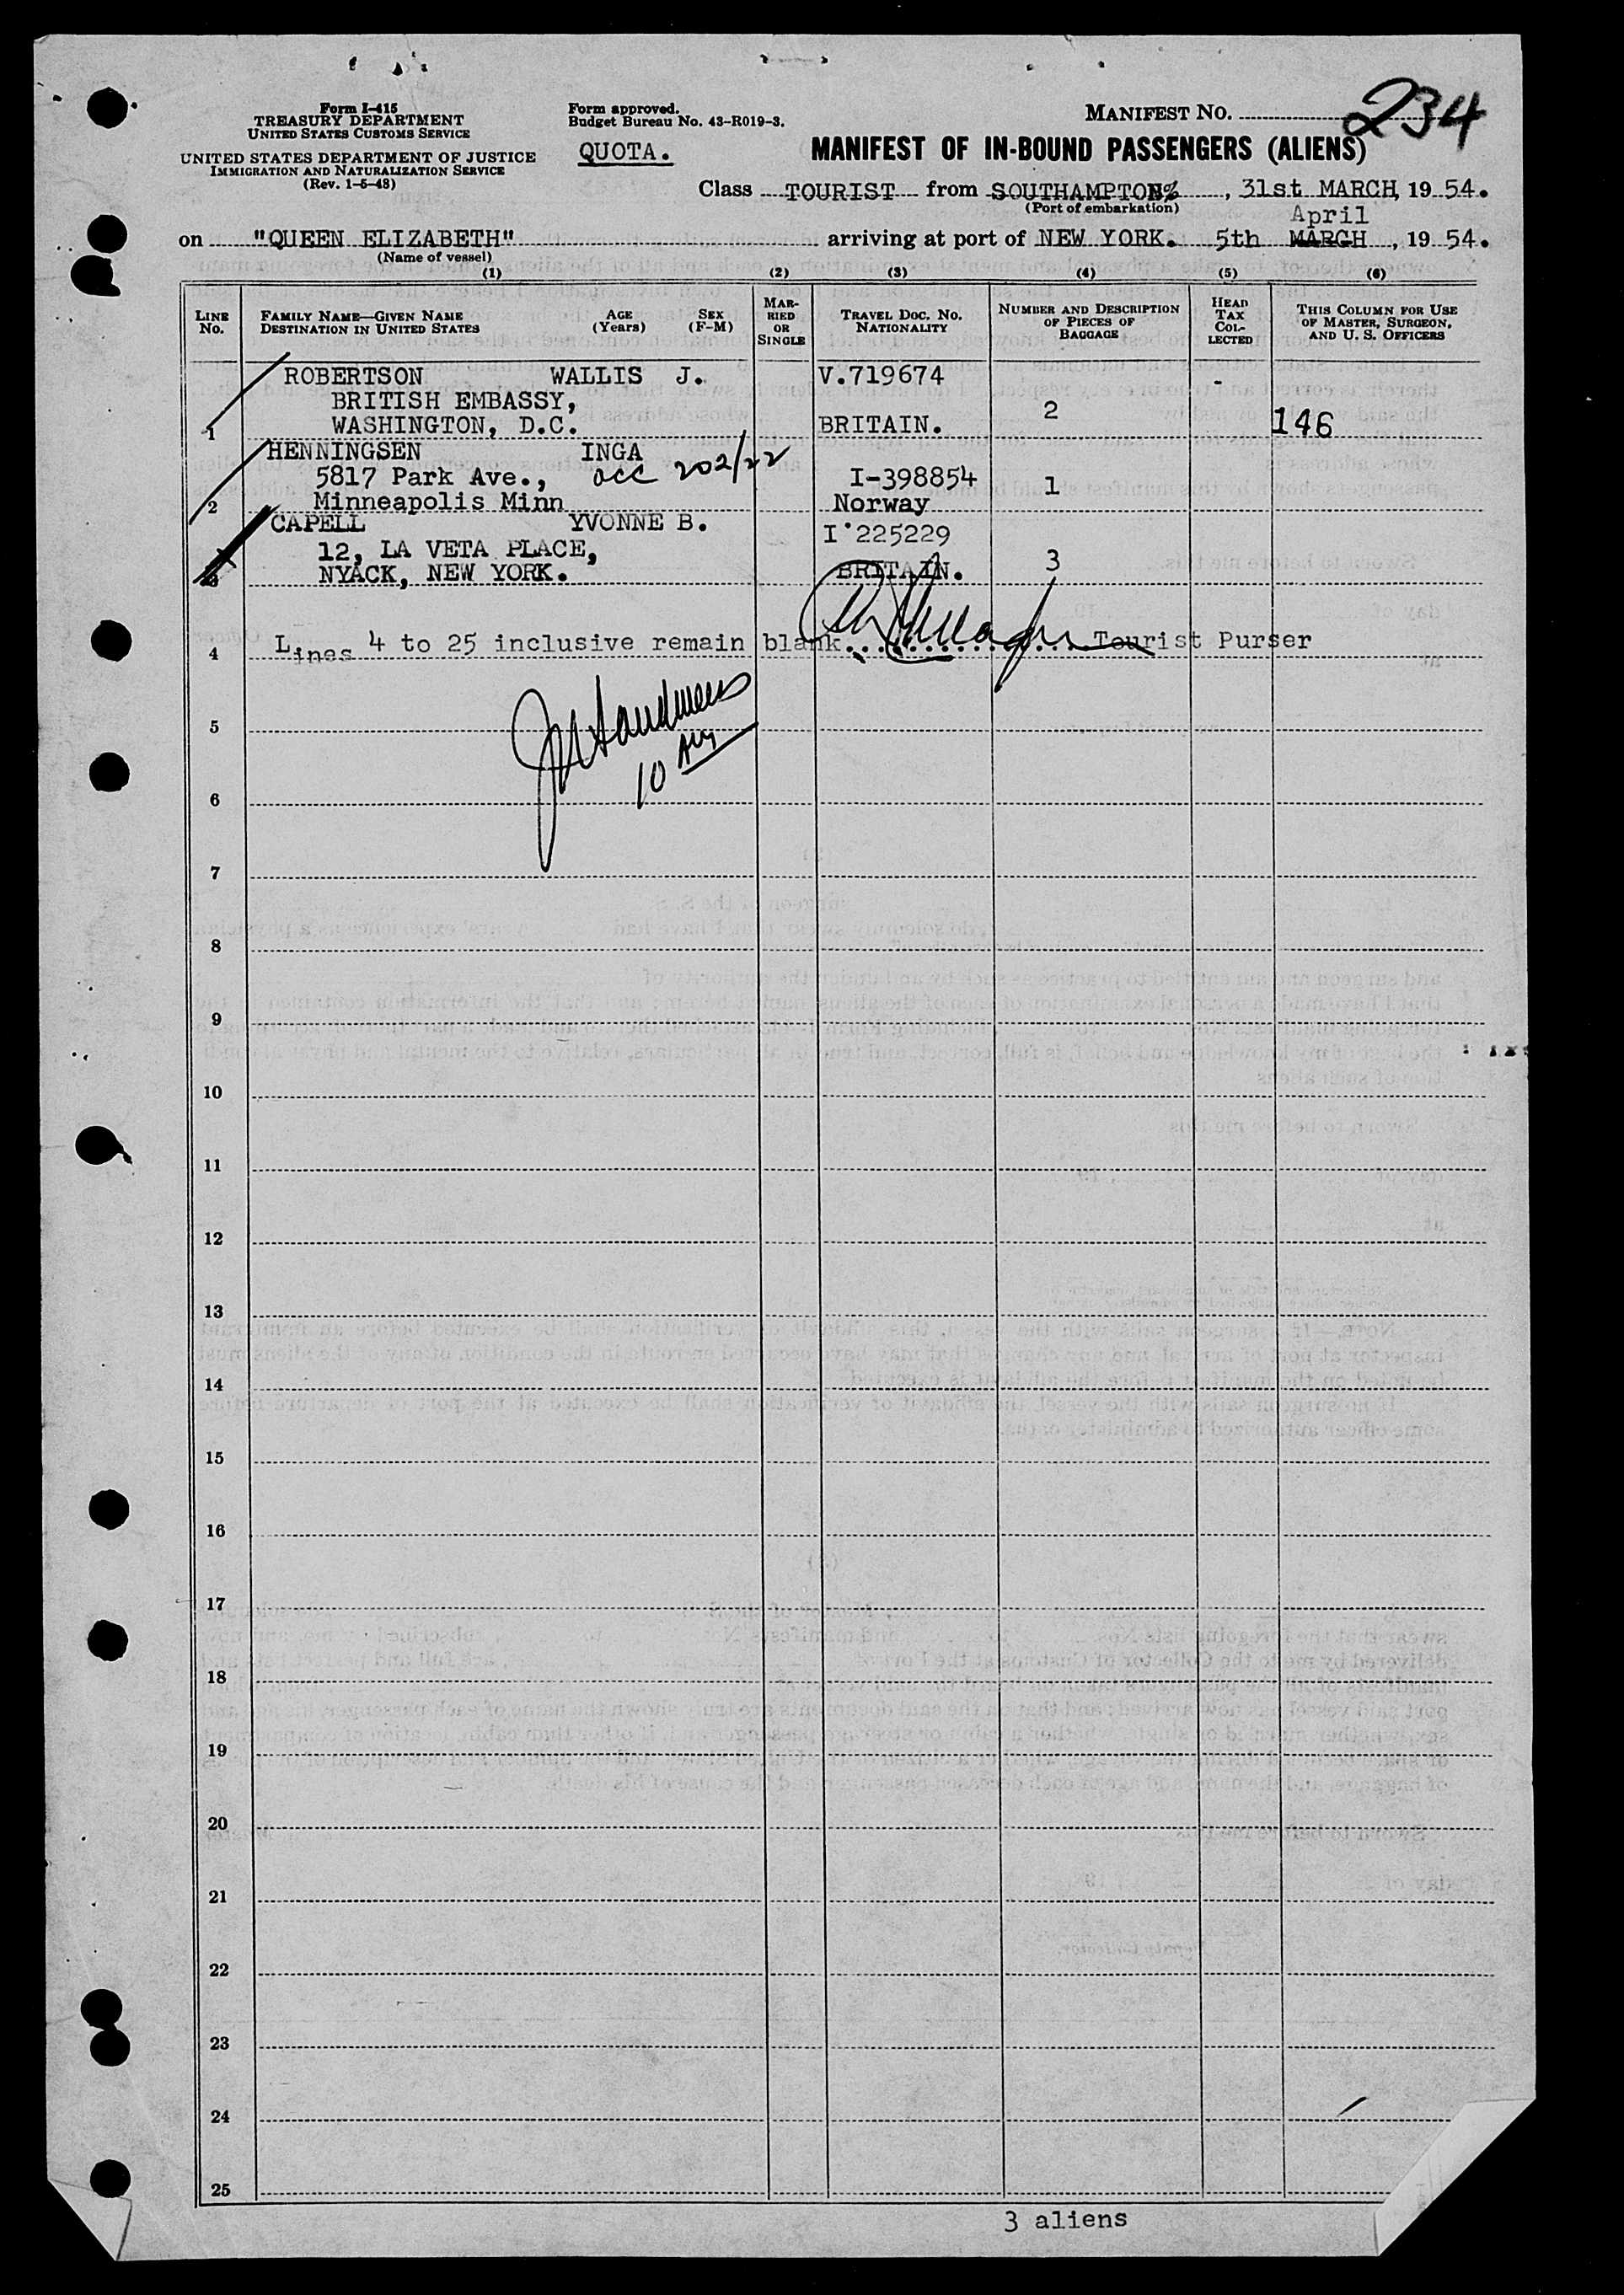 Form I-415
TREASURY DEPARTMENT
UNITED STATES CUSTOMS SERVICE
UNITED STATES DEPARTMENT OF JUSTICE
IMMIGRATION AND NATURALIZATION SERVICE
(Rev. 1-5-48)
Form approved.
Budget Bureau No. 43-R019-3.
QUOTA.
MANIFEST NO. 234
MANIFEST OF IN-BOUND PASSENGERS (ALIENS)
Class TOURIST from SOUTHAMPTON, 31st MARCH, 1954.
(Port of embarkation)
April
on "QUEEN ELIZABETH" arriving at port of NEW YORK. 5th MARCH, 1954.
(Name of vessel)
(1) (2) (3) (4) (5) (6)
LINE No. FAMILY NAME—GIVEN NAME DESTINATION IN UNITED STATES AGE (Years) SEX (F-M) MARRIED OR SINGLE TRAVEL DOC. NO. NATIONALITY NUMBER AND DESCRIPTION OF PIECES OF BAGGAGE HEAD TAX COLLECTED THIS COLUMN FOR USE OF MASTER, SURGEON, AND U. S. OFFICERS
ROBERTSON WALLIS J. V.719674 -
BRITISH EMBASSY, 2
1 WASHINGTON, D.C. BRITAIN. 146
HENNINGSEN INGA
5817 Park Ave., occ 202/22 I-398854 1
2 Minneapolis Minn Norway
CAPELL YVONNE B. I'225229
12, LA VETA PLACE,
3 NYACK, NEW YORK. BRITAIN. 3
4 Lines 4 to 25 inclusive remain blank Tourist Purser
5
10
6
7
8
9
10
11
12
13
14
15
16
17
18
19
20
21
22
23
24
25
3 aliens